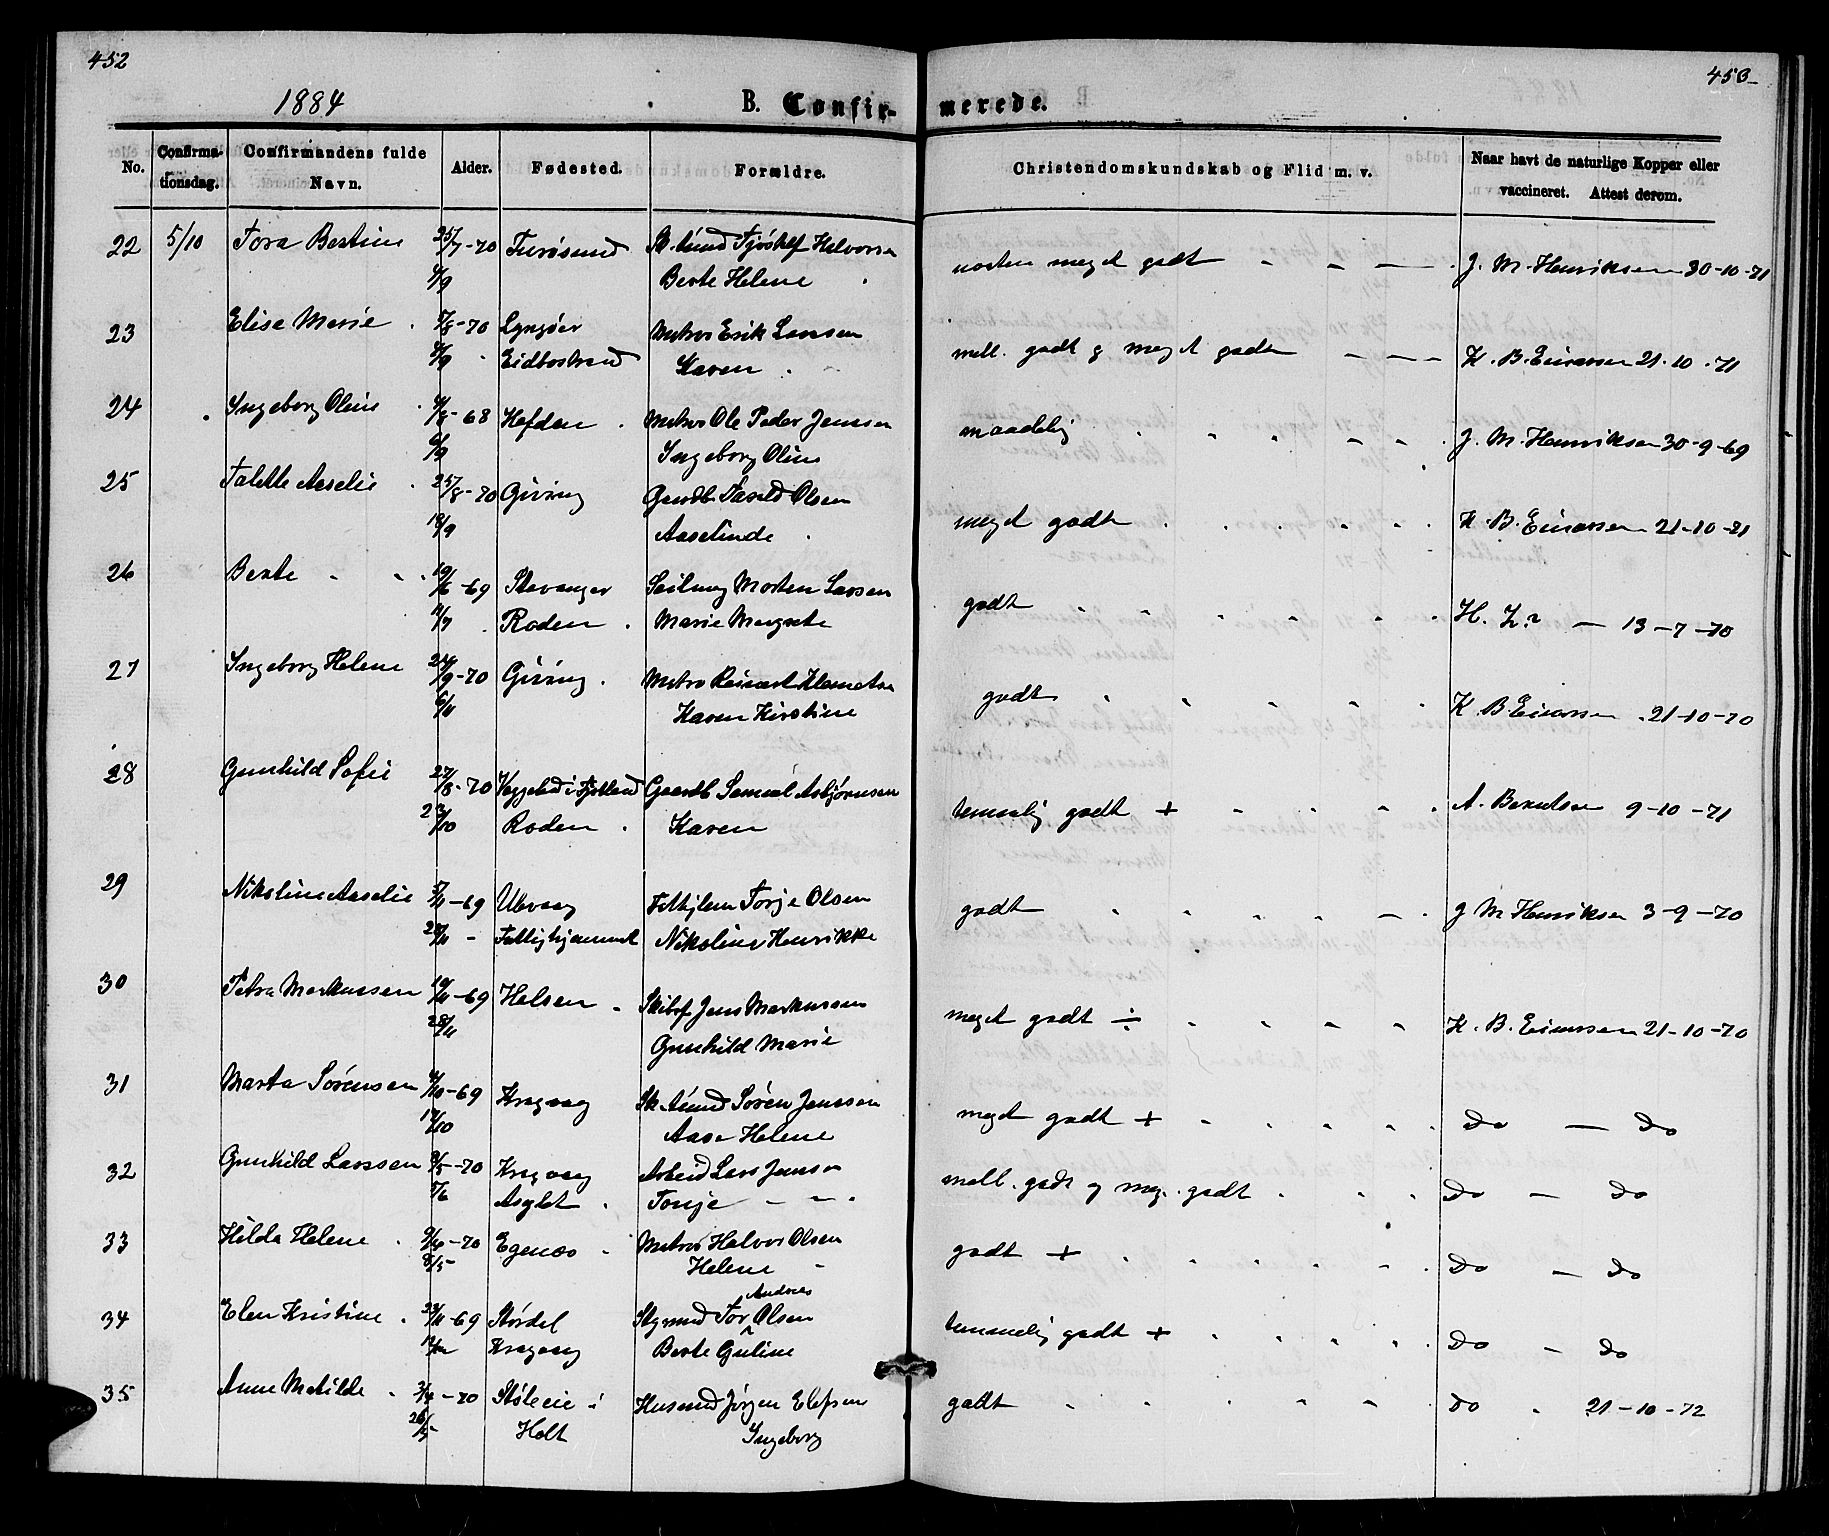 452
453
1884
B. Confir-
merede.
No.
Confirma-
tionsdag.
Confirmandens fulde
Navn.
Alder.
Fødested.
Forældre.
Christendomskundskab og Flid m. v.
Naar havt de naturlige Kopper eller
vaccineret. Attest derom.
22 5/10 Tora Bertine 25/7-70 Furøsund Halvorsen
4/9 Berte Helene
næsten meget godt J. M. Henriksen 30-10-71
23 Elise Marie 5/8-70 Lyngøer Matros Erik Larssen
4/9 Eidbostrand Karen
mell. godt g meget godt K. B. Einarssen 21-10-71
24 Ingeborg Oline 4/8-68 Matros Ole Peder Jenssen
6/9 Ingeborg Oline
maadelig J. M. Henriksen 30-9-69
25 Talette Aaselie 25/8-70 Giving Gaardb Olsen
18/9 Aaselinde
meget godt K. B. Einarssen 21-10-71
26 Berte 19/6-69 Stavanger Morten Larsen
4/7 Roden Marie Margrete
godt H. 13-7-70
27 Ingeborg Helene 24/9-70 Giving Matros
6/11 Karen Kirstine
godt K. B. Einarssen 21-10-70
28 Gunhild Sofie 27/8-70 Gaardb Samuel Asbjørnsen
23/10 Roden Karen
temmelig godt + A. Berntsen 9-10-71
29 Nikoline Aaselie 5/11-69 Ulevaag Terje Olsen
28/11 Fattighjemmet Nikoline Henrikke
godt J M Henriksen 3-9-70
30 Petra Markussen 19/11-69 Halsen Skibsf Jens Markussen
28/11 Gunhild Marie
meget godt ÷ K. B. Einarssen 21-10-70
31 Marta Sørensen 4/10-69 Kragvaag Søren Jenssen
17/10 Aase Helene
meget godt + Do — Do
32 Gunhild Larssen 3/5-70 Kragvaag Arbeid Lars Jensen
5/6 Asylet Tonje
mell. godt g meg. godt Do — Do
33 Hilda Helene 9/4-70 Egenæs Matros Halvor Olsen
8/5 Helene
godt + Do — Do
Andreas
34 Elen Kristine 23/11-69 Størdal Tor Olsen
12/12 Kragvaag Berte Guline
temmelig godt + Do — Do
35 Anne Matilde 3/4-70 i Husmd Jørgen Elefsen
26/5 Holt Ingeborg
godt Do 21-10-72